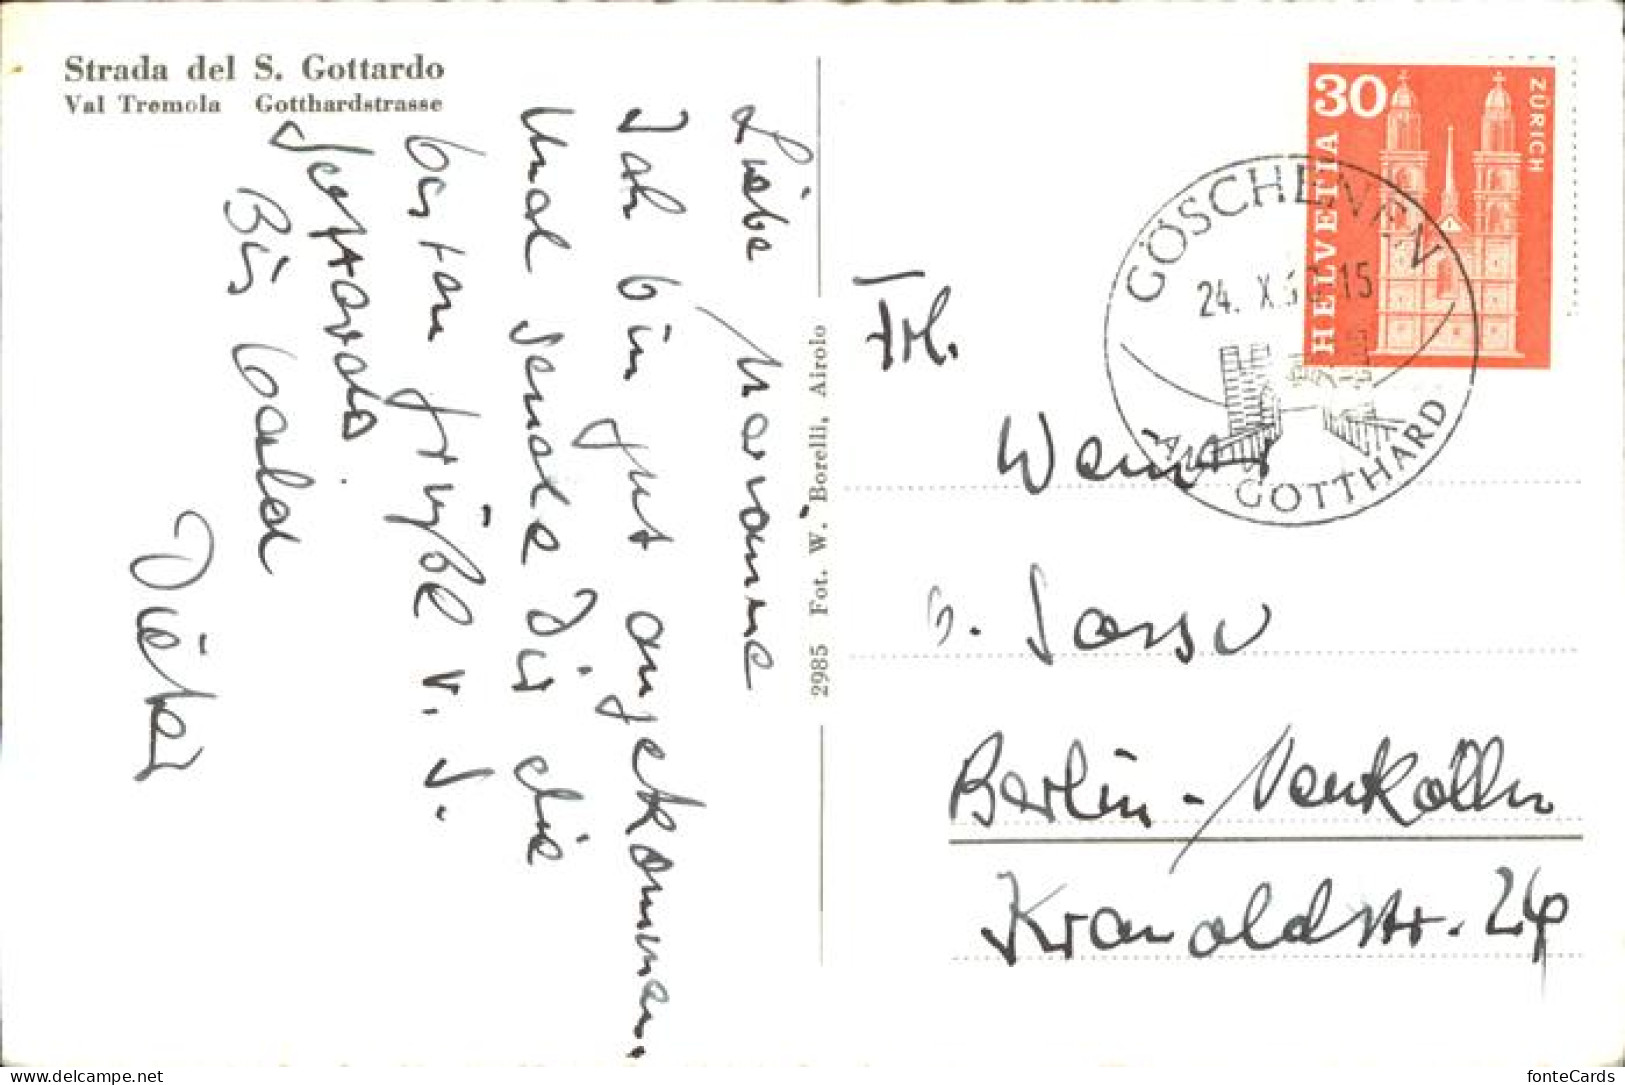 Strada del S. Gottardo
Val Tremola Gotthardstrasse
Liebe Marianne
Ich bin gut angekommen.
Und sende Dir die
besten Grüße v. S.
Gottardo
Bis bald
Dieter
2985 Fot. W. Borelli, Airolo
30
HELVETIA
ZÜRICH
GÖSCHENEN
24. X. 15
AM GOTTHARD
Frl.
b. Sasse
Berlin-Neukölln
Kranoldstr. 24
fonteCards